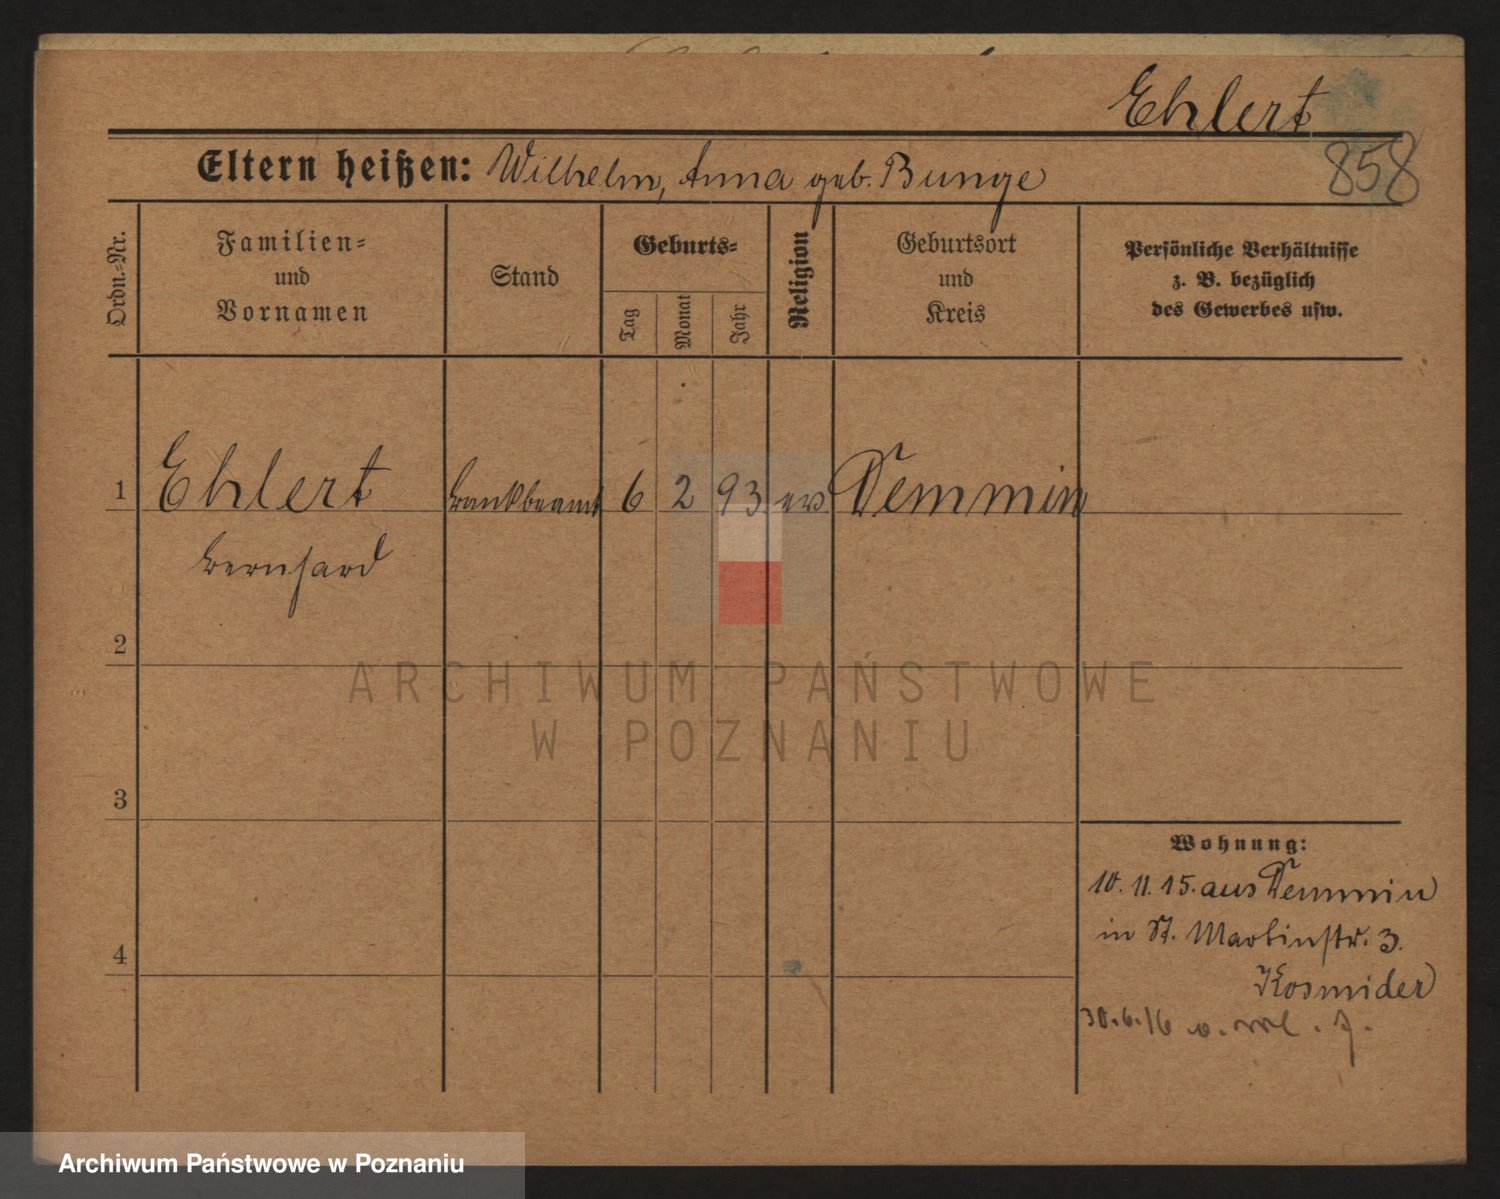 Ehlert
858
Eltern heißen: Wilhelm, Anna geb. Bunge
Ordn.-Nr.
Familien-
und
Vornamen
Stand
Geburts-
Tag
Monat
Jahr
Religion
Geburtsort
und
Kreis
Persönliche Verhältnisse
z. B. bezüglich
des Gewerbes usw.
1 Ehlert Bankbeamt 6 2 93 ev. Demmin
Bernhard
2
3
4
Wohnung:
10. 11. 15. aus Demmin
in St. Martinstr. 3.
Kosmider
30.6.16
ARCHIWUM PAŃSTWOWE
W POZNANIU
Archiwum Państwowe w Poznaniu